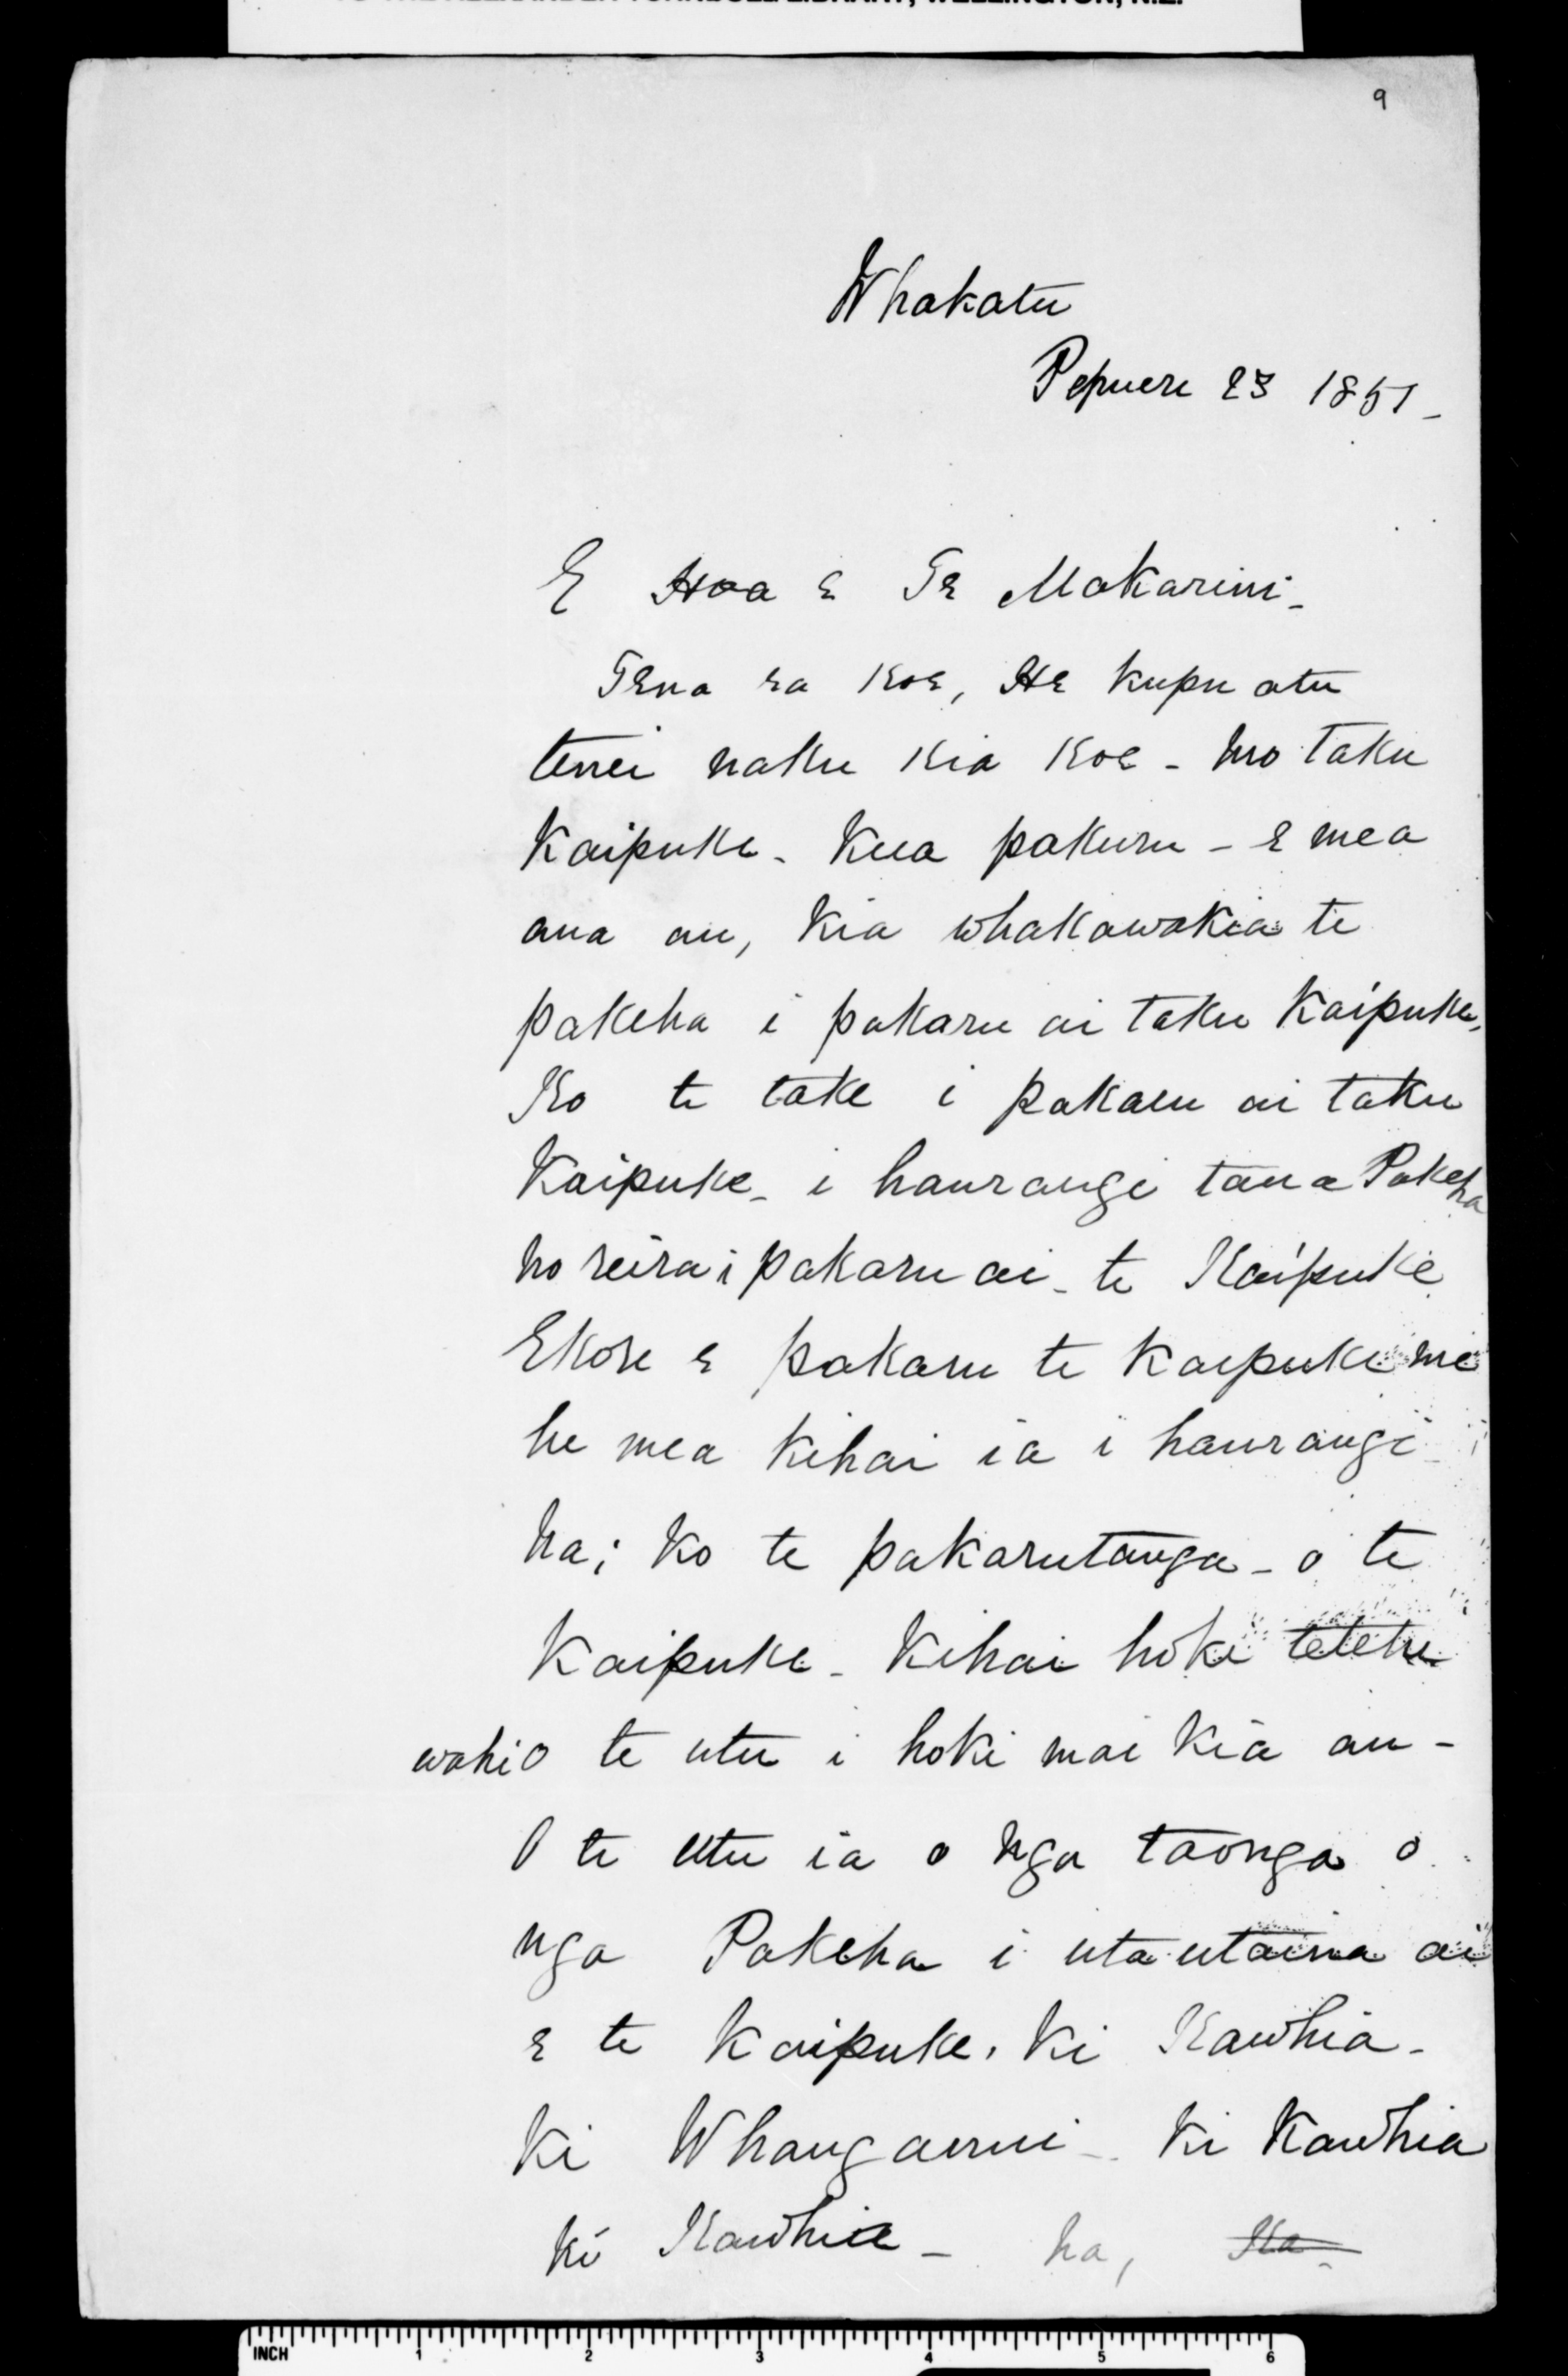 TO THE ALEXANDER TURNBULL LIBRARY, WELLINGTON, N.Z.
9
Whakatu
Pepuere 23 1851_
E Hoa e Te Makarini_
Tena ra koe, He kupu atu
tenei naku kia koe - mo taku
Kaipuke - Kua pakuru - e mea
ana au, kia whakawakia te
pakeha i pakaru ai taku Kaipuke,
Ko te take i pakaru ai taku
Kaipuke - i haurangi taua Pakeha
no reira i pakaru ai - te Kaipuke
Ekore e pakaru te Kaipuke me
he mea kihai ia i haurangi
Na; ko te pakarutanga - o te
Kaipuke - Kihai hoki tetehi
wahi o te utu i hoki mai kia au -
O te utu ia o nga taonga o
nga Pakeha i utautaina ai
e te Kaipuke, Ki Kawhia -
Ki Whanganui - Ki Kawhia
ki Kawhia - na, Ka
INCH 1 2 3 4 5 6